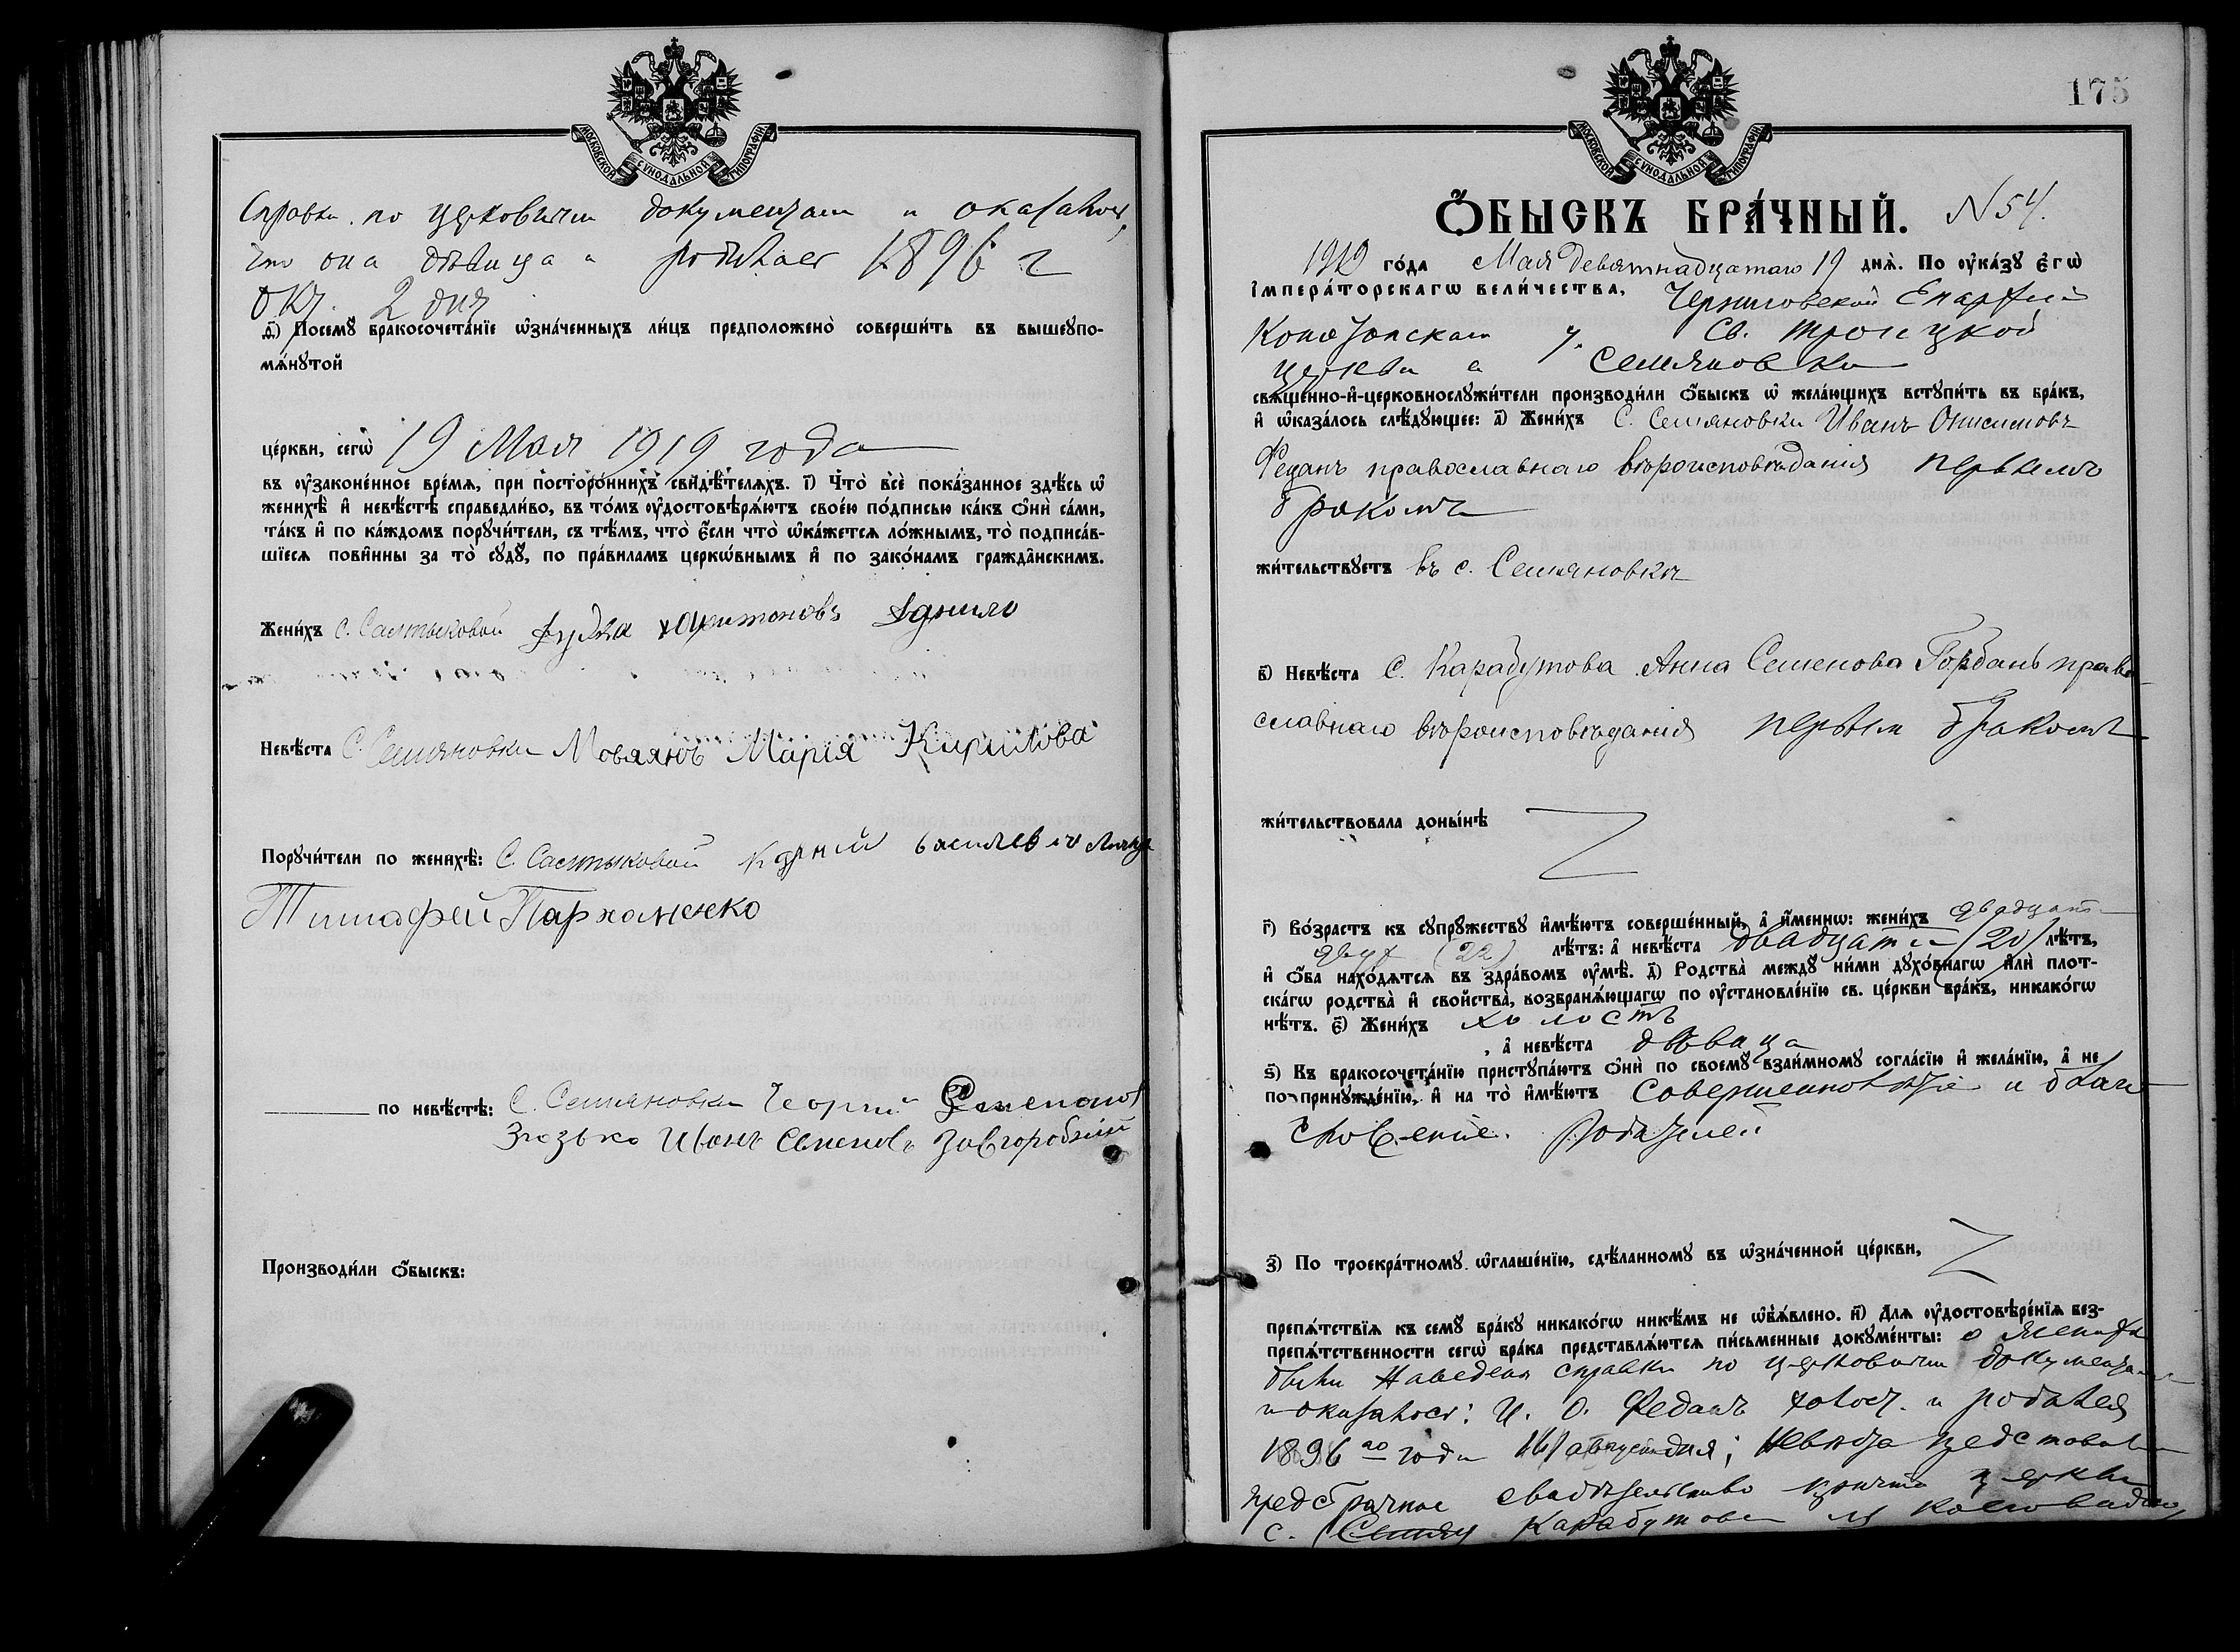 МОСКОВСКОЙ СѴНОДАЛЬНОЙ ТИПОГРАФІИ
Справки по церковнымъ документамъ и оказалось,
что она дѣвица и родилась 1896 г
окт. 2 дня
д҃і) Посемꙋ бракосочета́нїе ѡ҆зна́ченныхъ ли́цъ предположено̀ соверши́ть въ вышеꙋпо-
мѧ́нꙋтой
це́ркви, сегѡ̀ 19 Мая 1919 года
въ ᲂу҆зако́ненное вре́мѧ, при посторо́ннихъ свидѣ́телѧхъ. і҃) Что̀ всѐ пока́занное здѣ́сь ѡ҆
женихѣ̀ и҆ невѣ́стѣ справедли́во, въ то́мъ ᲂу҆достовѣрѧ́ютъ свое́ю по́дписью ка́къ ѻ҆нѝ са́ми,
та́къ и҆ по ка́ждомъ порꙋчи́тели, съ тѣ́мъ, что̀ є҆́сли что̀ ѡ҆ка́жетсѧ ло́жнымъ, то̀ подписа́в-
шїесѧ пови́нны за то̀ сꙋдꙋ̀, по пра́виламъ церкѡ́внымъ и҆ по зако́намъ гражда́нскимъ.
Жени́хъ С. Салтыковой
Невѣ́ста С. Семяновки Мовяянъ Марія Кирилова
Порꙋчи́тели по женихѣ̀: С. Салтыковой
Тимафей Пархаменко
по невѣ́стѣ: С. Семяновки Георгій
Иванъ Семеновъ Завгородній
Производи́ли ѻ҆́быскъ:
175
МОСКОВСКОЙ СѴНОДАЛЬНОЙ ТИПОГРАФІИ
Ѻ҆́БЫСКЪ БРА́ЧНЫЙ. N 54.
1919 го́да Мая девятнадцатаго 19 днѧ̀. По ᲂу҆ка́зꙋ є҆гѡ̀
і҆мпера́торскагѡ вели́чества, Черниговской Епархіи
Конотопскаго у. Св. Троицкой
церкви с. Семяновки
свѧще́нно-и҆-церковнослꙋжи́тели производи́ли ѻ҆́быскъ ѡ҆ жела́ющихъ встꙋпи́ть въ бра́къ,
и҆ ѡ҆каза́лось слѣ́дꙋющее: а҃) Жени́хъ С. Семяновки Иванъ Онисимовъ
Феданъ православнаго вѣроисповѣданія первымъ
бракомъ
жи́тельствꙋетъ въ с. Семяновкѣ
в҃) Невѣ́ста С. Карабутова Анна Семенова Горбань право-
славнаго вѣроисповѣданія первым бракомъ
жи́тельствовала доны́нѣ
г҃) Во́зрастъ къ сꙋпрꙋ́жествꙋ и҆мѣ́ютъ соверше́нный, а҆ и҆́менно: жени́хъ двадцати
двух (22) лѣ́тъ: а҆ невѣ́ста двадцати (20) лѣ́тъ,
и҆ ѻ҆́ба нахо́дѧтсѧ въ здра́вомъ ᲂу҆мѣ̀. д҃) Родства̀ междꙋ̀ ни́ми дꙋхо́внагѡ и҆лѝ пло́т-
ска́гѡ родства̀ и҆ сво́йства, возбранѧ́ющагѡ по ᲂу҆становле́нїю св. це́ркви бра́къ, никако́гѡ
нѣ́тъ. є҃) Жени́хъ холостъ
, а҆ невѣ́ста дѣвица
ѕ҃) Къ бракосочета́нїю пристꙋпа́ютъ ѻ҆нѝ по своемꙋ̀ взаи́мномꙋ согла́сїю и҆ жела́нїю, а҆ не
по принꙋжде́нїю, и҆ на то̀ и҆мѣ́ютъ совершеннолѣтіе и благо-
словеніе родителей
з҃) По троекра́тномꙋ ѡ҆глаше́нїю, сдѣ́ланномꙋ въ ѡ҆зна́ченной це́ркви,
препѧ́тствїѧ къ семꙋ̀ бра́кꙋ никако́гѡ никѣ́мъ не ѡ҆б̾ѧ́влено. и҃) Длѧ ᲂу҆достовѣре́нїѧ без-
препѧ́тственности сегѡ̀ бра́ка представлѧ́ютсѧ пи́сьменные докꙋме́нты: о женихѣ
были наведены справки по церковнымъ документамъ
и оказалось: И. О. Феданъ холост и родился
1896 го года 16 августа дня; невѣста представила
предбрачное свидѣтельство причта церкви
с. Карабутова